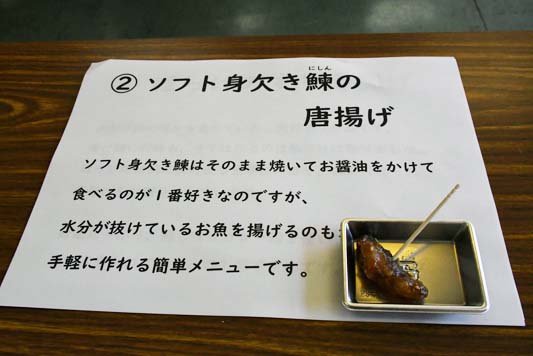 ② ソフト身欠き鰊の
にしん
唐揚げ
ソフト身欠き鰊はそのまま焼いてお醤油をかけて
食べるのが1番好きなのですが、
水分が抜けているお魚を揚げるのも
手軽に作れる簡単メニューです。